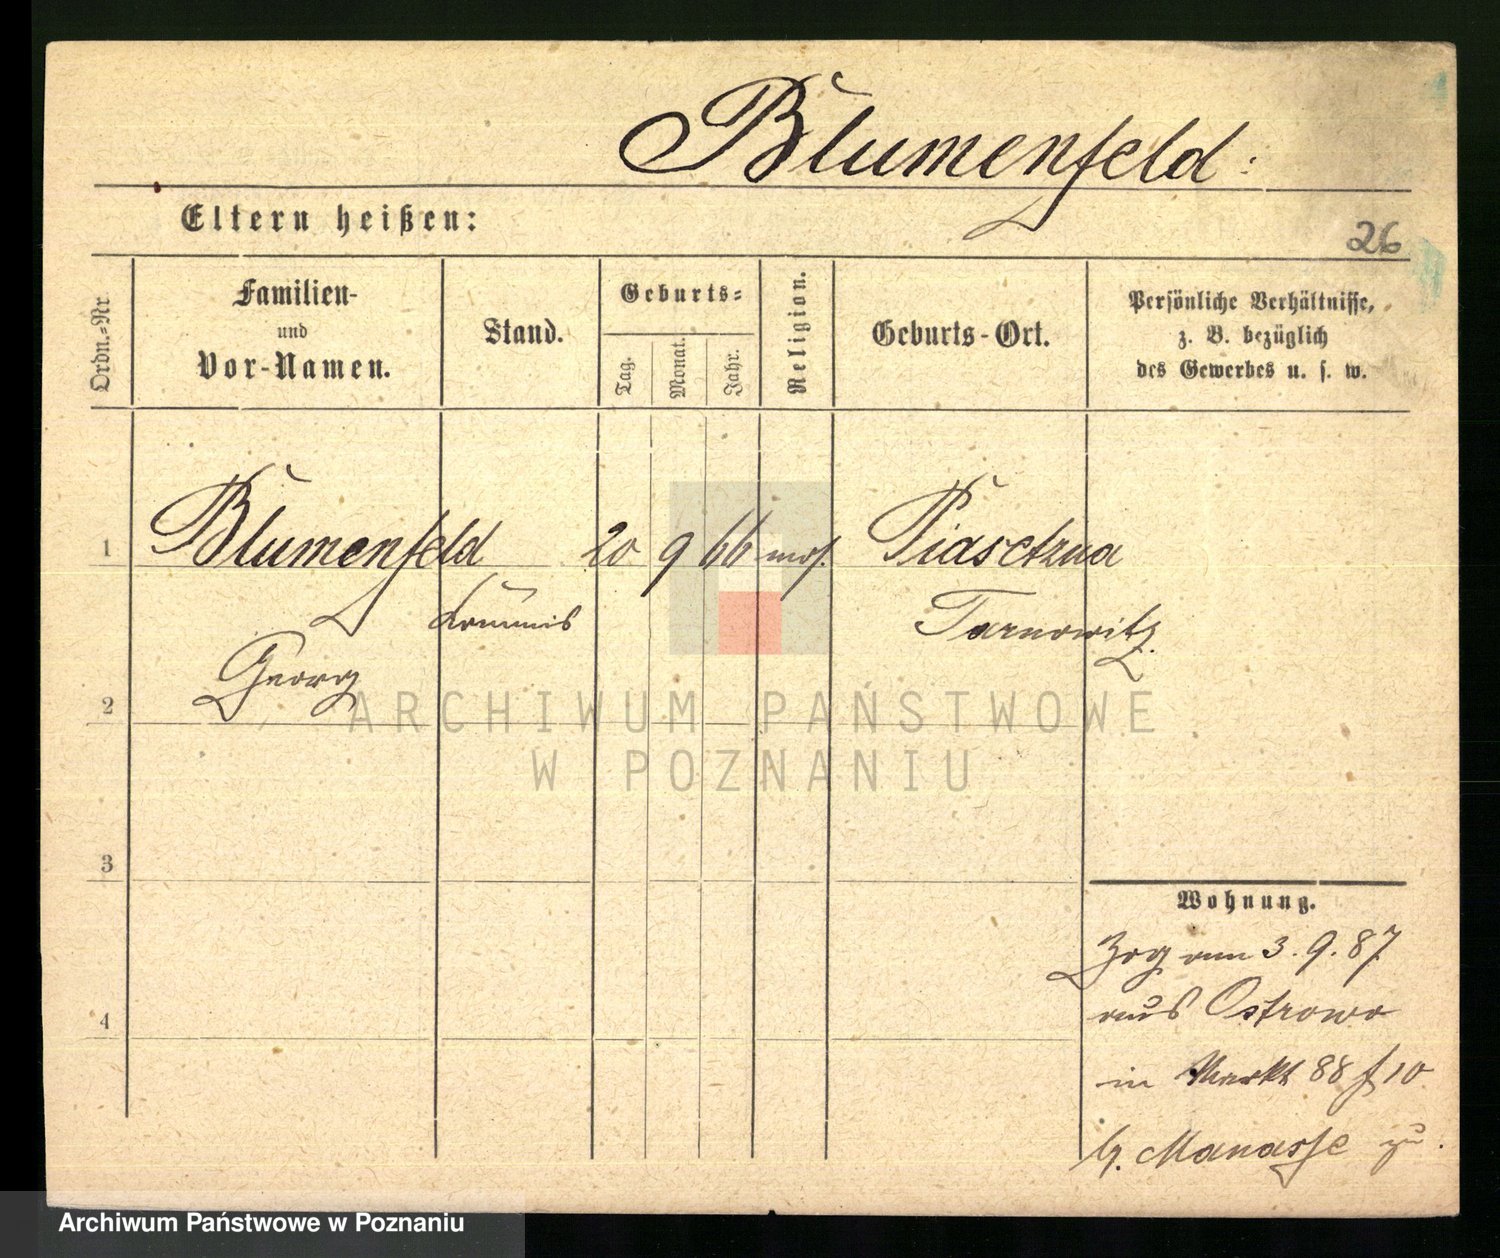 Blumenfeld:
Eltern heißen:
26
Ordn.-Nr.
Familien-
und
Vor-Namen.
Stand.
Geburts-
Tag.
Monat.
Jahr.
Religion.
Geburts-Ort.
Persönliche Verhältnisse,
z. B. bezüglich
des Gewerbes u. s. w.
1
Blumenfeld
20 9 66 mos.
Piasetzna
Kommis
Tarnowitz.
Georg
2
ARCHIWUM PAŃSTWOWE
W POZNANIU
3
Wohnung.
Zog am 3. 9. 87.
aus Ostrowo
4
in Markt 88 10
b. Manasse zu.
Archiwum Państwowe w Poznaniu